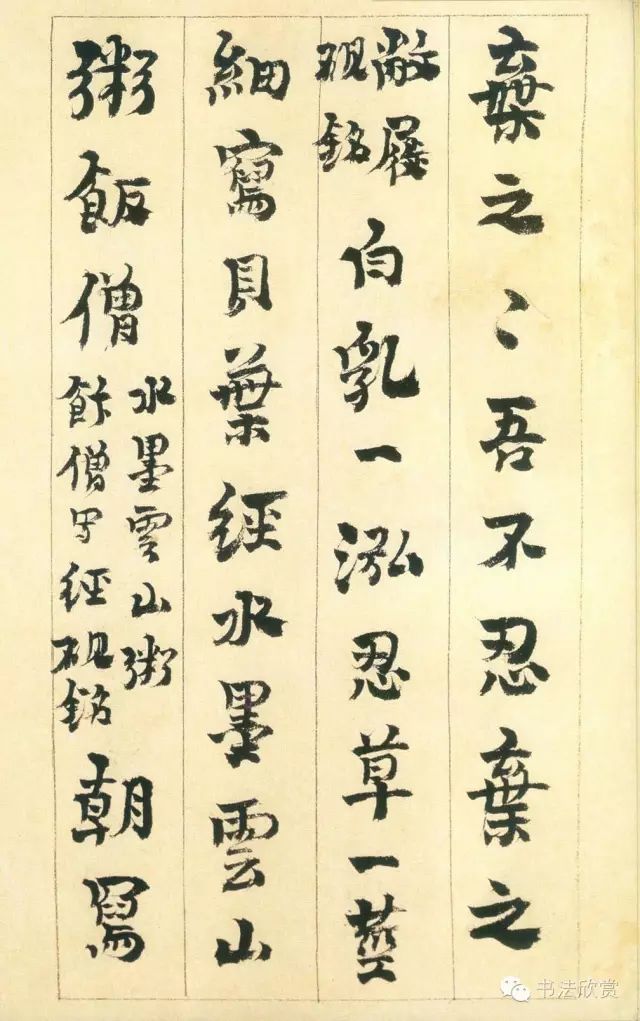 棄之〻吾不忍棄之
敝屐
硯銘
白乳一泓忍草一莖
細寫貝葉經水墨雲山
粥飯僧
水墨雲山粥
飰僧寫經硯銘
朝寫
书法欣赏